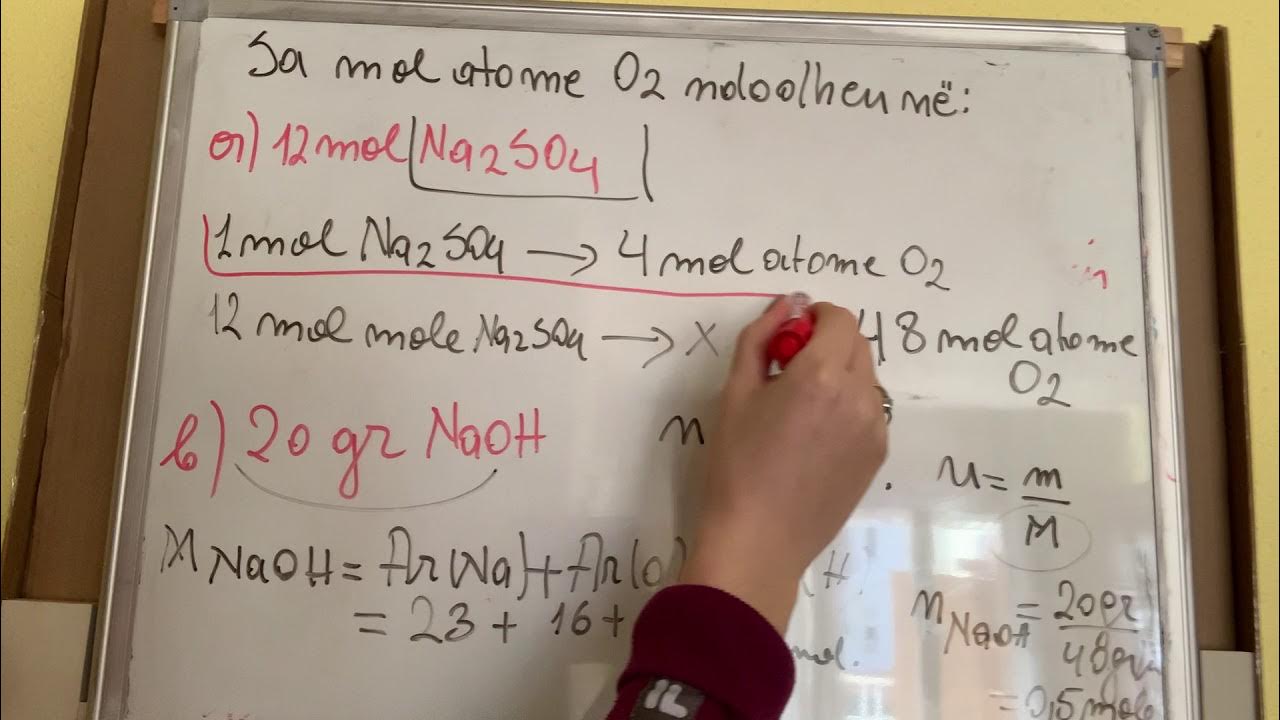 Sa mol atome O2 ndodhen në:
a) 12 mol Na2SO4
1 mol Na2SO4 → 4 mol atome O2
12 mol mole Na2SO4 → X 48 mol atome O2
b) 20 gr NaOH
n
n = m/M
M NaOH = Ar(Na) + Ar(O) (H)
= 23 + 16 +
mol.
n NaOH = 20gr/48gr
= 0,5 mole